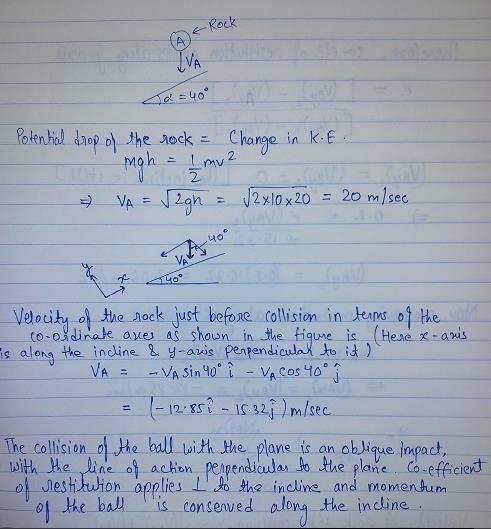 A
← Rock
V_A
α = 40°
Potential drop of the rock = Change in K.E.
Mgh = 1/2 mv²
⇒ V_A = √2gh = √2×10×20 = 20 m/sec
40°
V_A
y
x
40°
Velocity of the rock just before collision in terms of the
co-ordinate axes as shown in the figure is (Here x-axis
is along the incline & y-axis perpendicular to it)
V_A = -V_A sin 40° î - V_A cos 40° ĵ
= (-12.85î - 15.32ĵ) m/sec
The collision of the ball with the plane is an oblique impact,
with the line of action perpendicular to the plane. Co-efficient
of restitution applies ⊥ to the incline and momentum
of the ball is conserved along the incline.